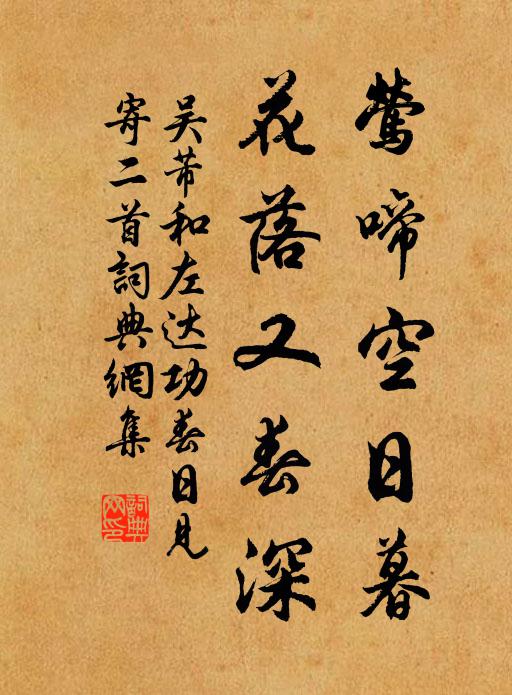 鶯啼空日暮
花落又春深
吴芾和左达功春日見
寄二首詞典網集
詞典網印